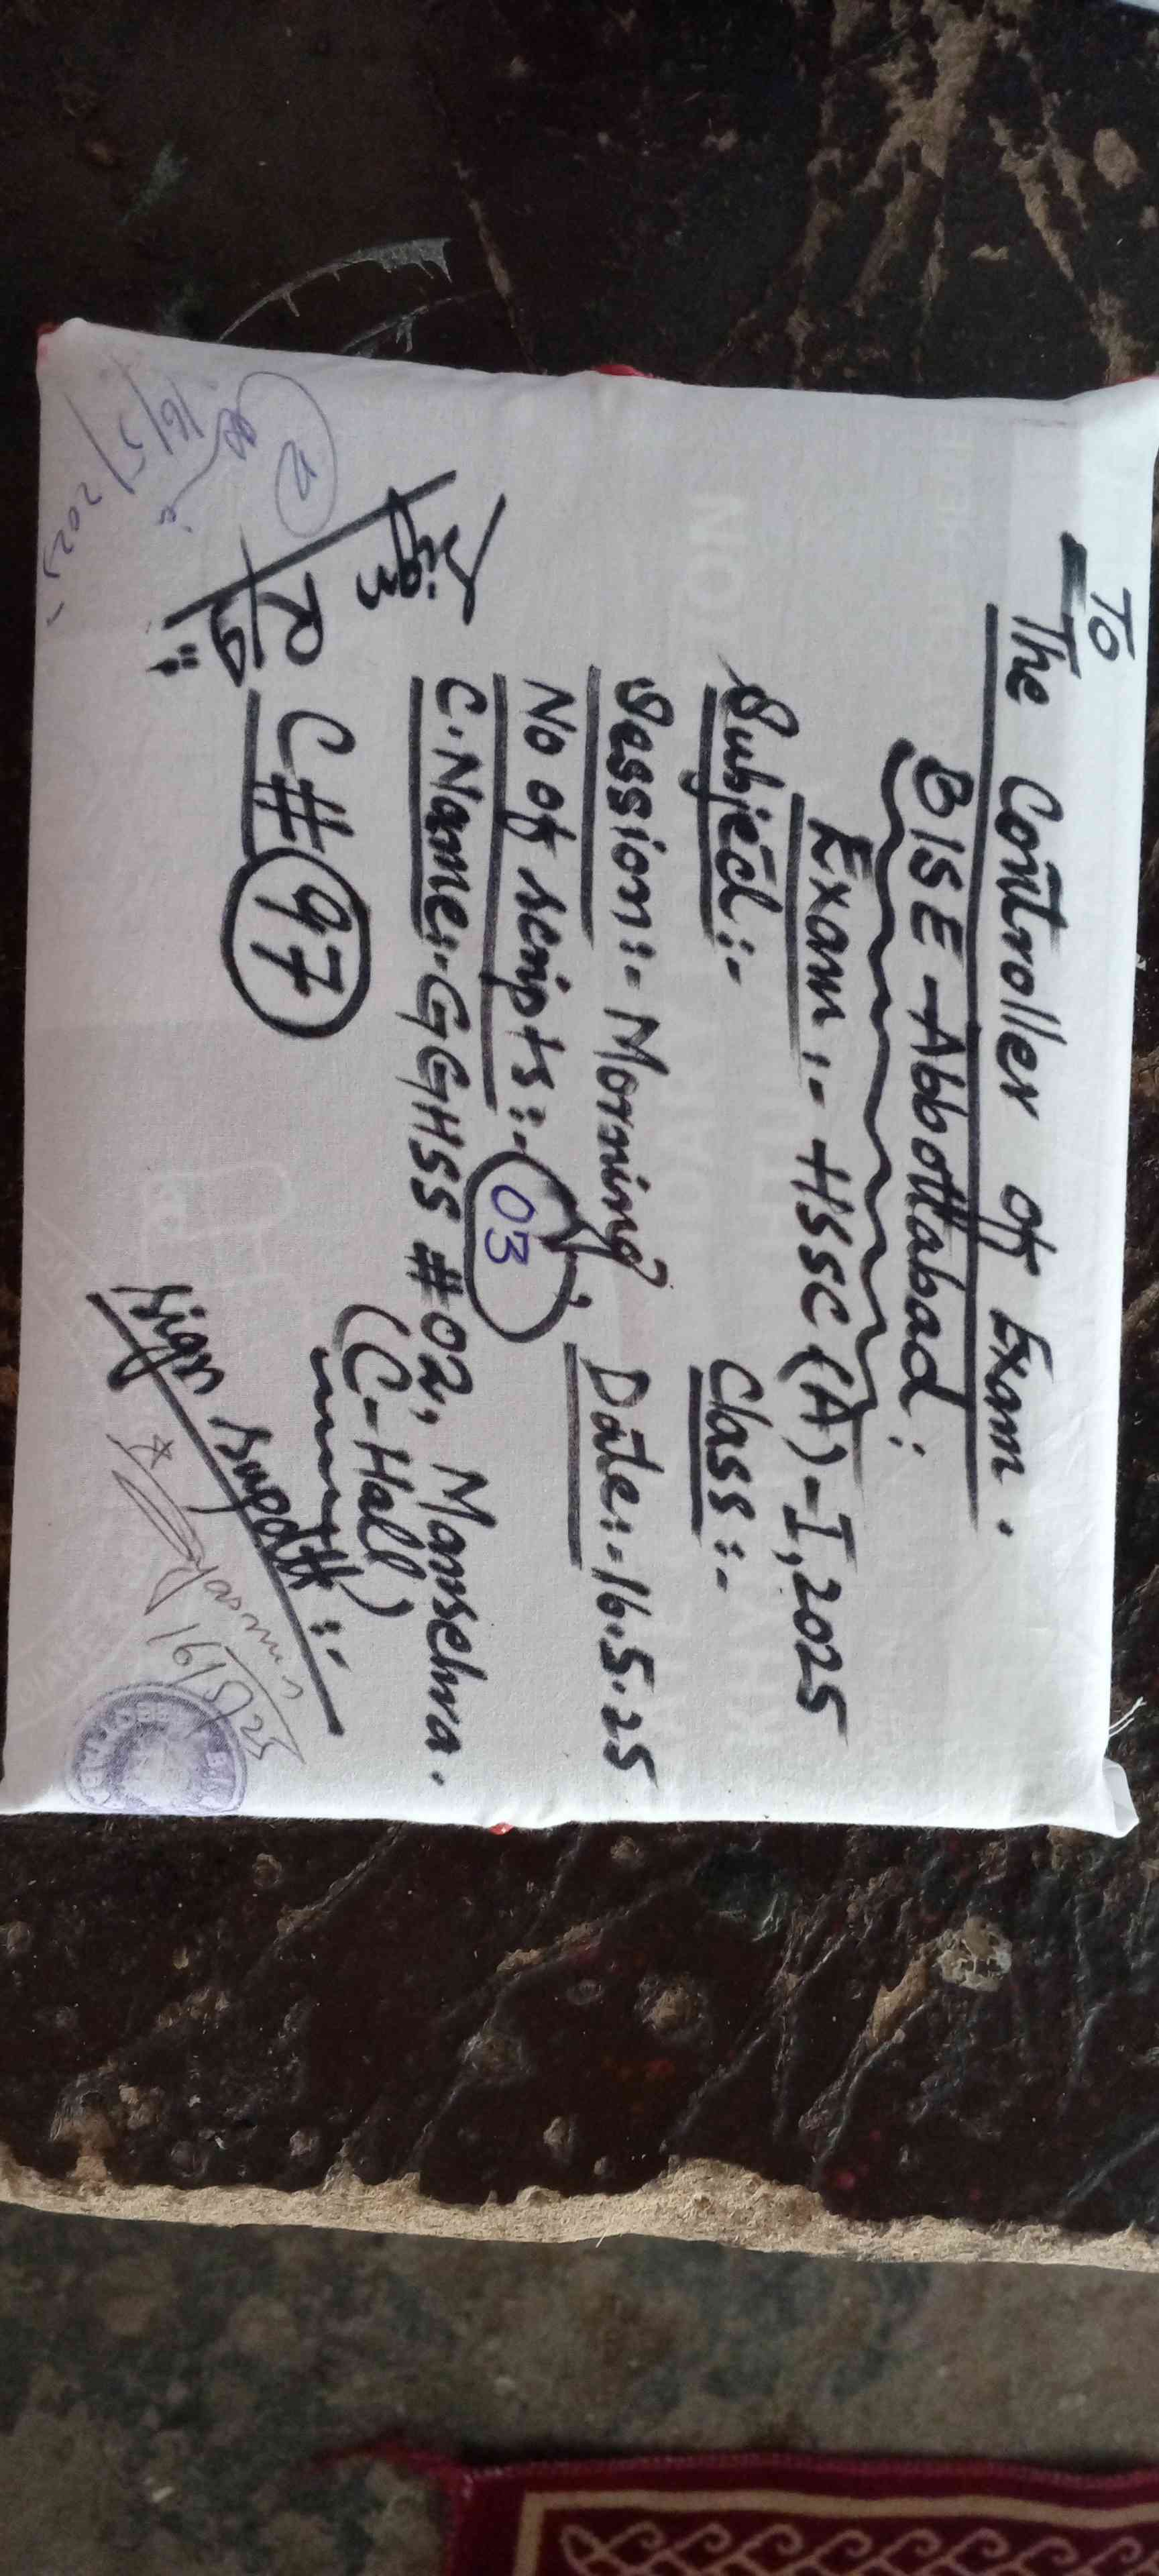 To
The Controller of Exam.
BISE-Abbottabad:
Exam:- HSSC(A)-I, 2025
Subject:- Class:-
Session:- Morning, Date:- 16.5.25
No of scripts:- 03
C.Name:- GGHSS #02, Mansehra.
(C-Hall)
C# 97
Sign
Sign Supdtt:-
16/5/25
16/5/2025